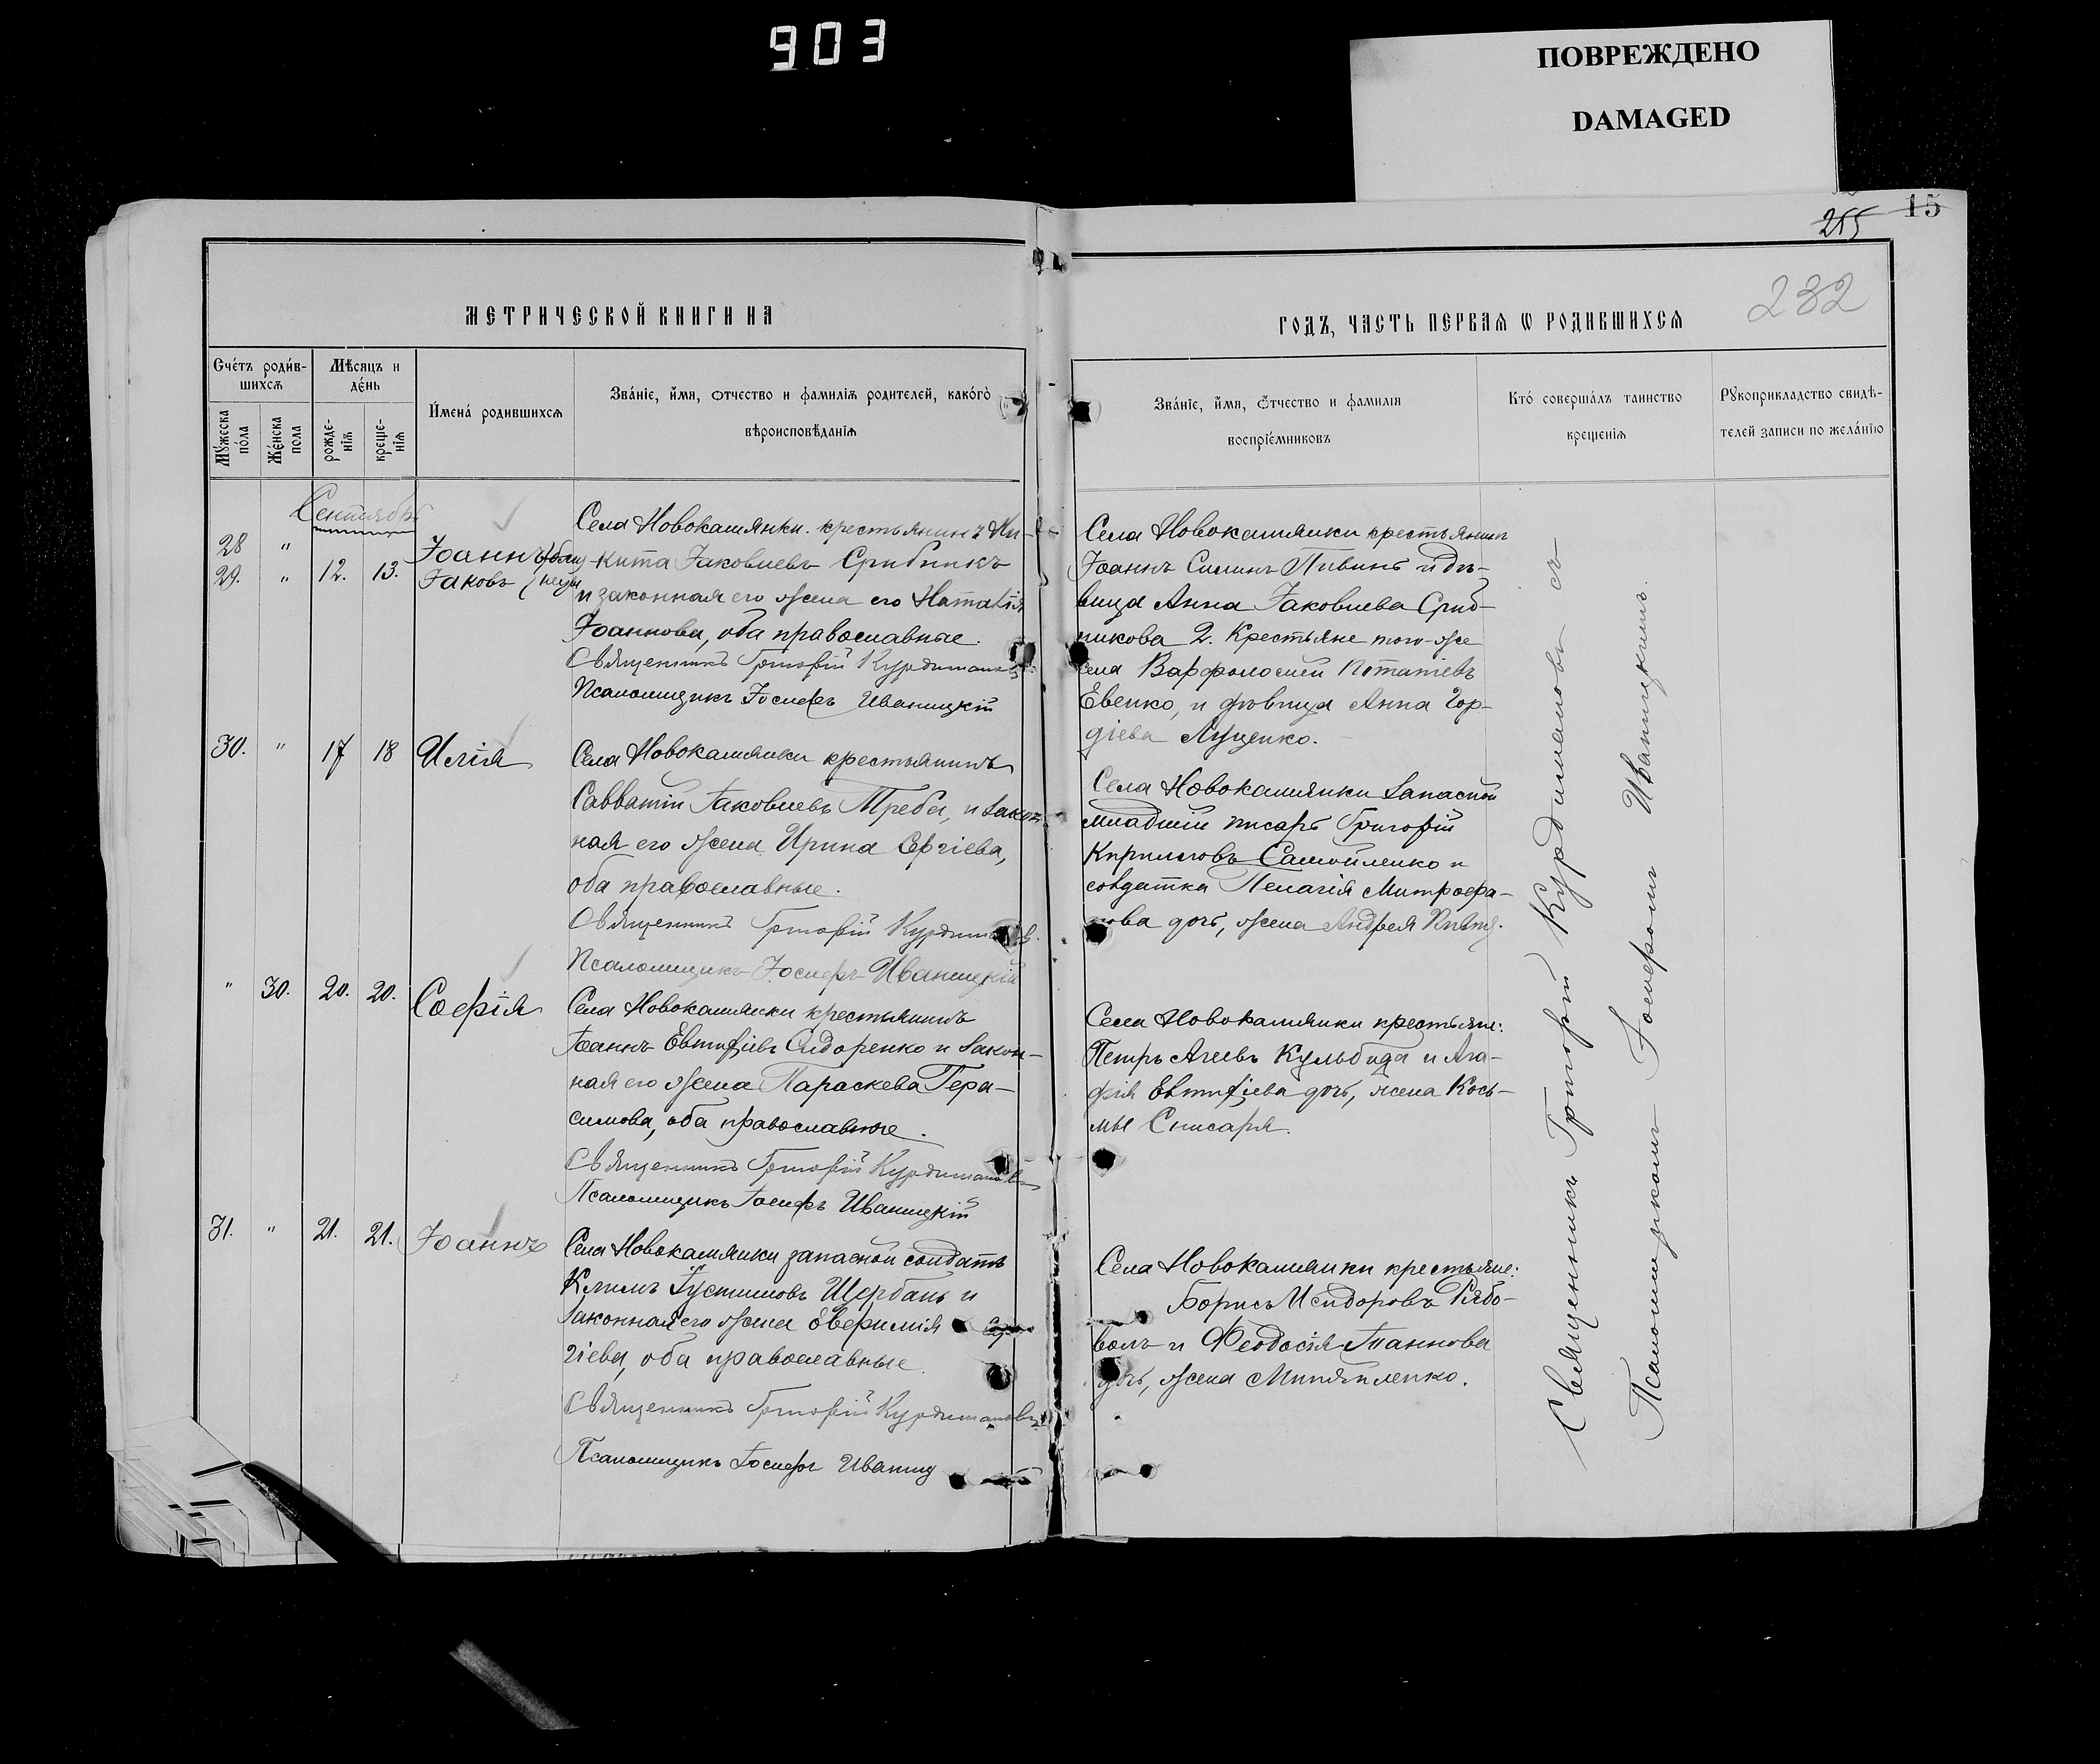 903
ПОВРЕЖДЕНО
DAMAGED
15
255
232
МЕТРИЧЕСКОЙ КНИГИ НА
ГОДЪ, ЧАСТЬ ПЕРВАЯ Ѡ РОДИВШИХСЯ
Счéтъ роди́в-
шихся
Мѣсяцъ и
дéнь
Мꙋ́жеска
пóла
Жéнска
пола
рожде-
нія
креще-
нія
И́мена́ родившихся
Зва́ніе, и́мя, ѻтчество и фамилія родителей, како́гѡ
вѣроисповѣданія
Зва́ніе, и́мя, ѻ́тчество и фамилія
воспріе́мниковъ
Кто́ соверша́лъ таинство
крещенія
Рꙋкоприкладство свидѣ-
телей записи по жела́нію
Сентябрь
28 "
29. " 12. 13.
Іоаннъ
Іаковъ
Села Новокамянки. крестьянинъ Ни-
кита Іаковлевъ Срибникъ
и законная его жена его Наталія
Іоаннова, оба православные.
Священникъ Григорій Курдиманов
Псаломщикъ Іосифъ Иваницкій
Села Новокамянки крестьянин
Іоаннъ Симинъ Пивинъ и дѣ-
вица Анна Іаковлева Сриб-
никова 2. Крестьяне того-же
села Варфоломей Потапіевъ
Евенко, и дѣвица Анна Гор-
діева Луценко.
30. " 17 18 Илія
Села Новокамянки крестьянинъ
Савватій Іаковлевъ Треба, и закон
ная его жена Ирина Сергіева,
оба православные.
Священникъ Григорій Курдиманов.
Псаломщикъ Іосифъ Иваницкій
Села Новокамянки запасной
младшій писарь Григорій
Кирилловъ Самойленко и
солдатка Пелагія Митрофа-
нова дочь, жена Андрея
" 30. 20. 20. Софія
Села Новокамянки крестьянинъ
Іоаннъ Евтифіевъ Сидоренко и закон-
ная его жена Параскева Гера-
симова, оба православные.
Священникъ Григорій Курдимановъ
Псаломщикъ Іосифъ Иваницкій
Села Новокамянки крестьяне:
Петръ Агеевъ Кульбида и Ага-
фія Евтифіева дочь, жена Кось-
мы Списаря.
31. " 21. 21. Іоаннъ
Села Новокамянки запасной солдатъ
Климъ Іустиновъ Щербань и
законная его жена Евфимія
гіева, оба православные.
Священникъ Григорій Курдимановъ
Псаломщикъ Іосифъ Иваниц
Села Новокамянки крестьяне:
Борисъ Исидоровъ Рябо-
волъ и Феодосія Іоаннова
дочь, жена
Священникъ Григорій Курдимановъ съ
Псаломщикомъ Іосифомъ Иваницкимъ.